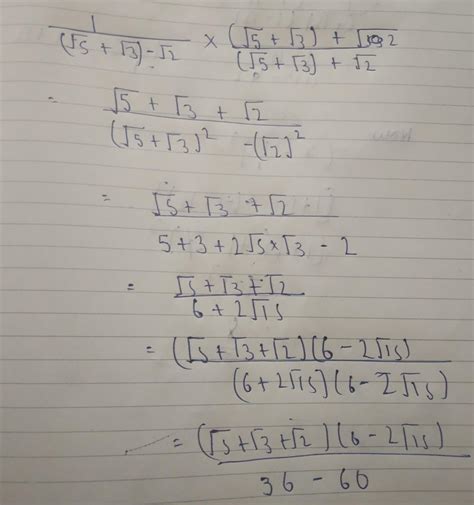 1/((√5 + √3) - √2) × ((√5 + √3) + √2)/((√5 + √3) + √2)
= (√5 + √3 + √2)/((√5 + √3)² - (√2)²)
= (√5 + √3 + √2)/(5 + 3 + 2√5×√3 - 2)
= (√5 + √3 + √2)/(6 + 2√15)
= (√5 + √3 + √2)(6 - 2√15)/(6 + 2√15)(6 - 2√15)
= (√5 + √3 + √2)(6 - 2√15)/(36 - 60)